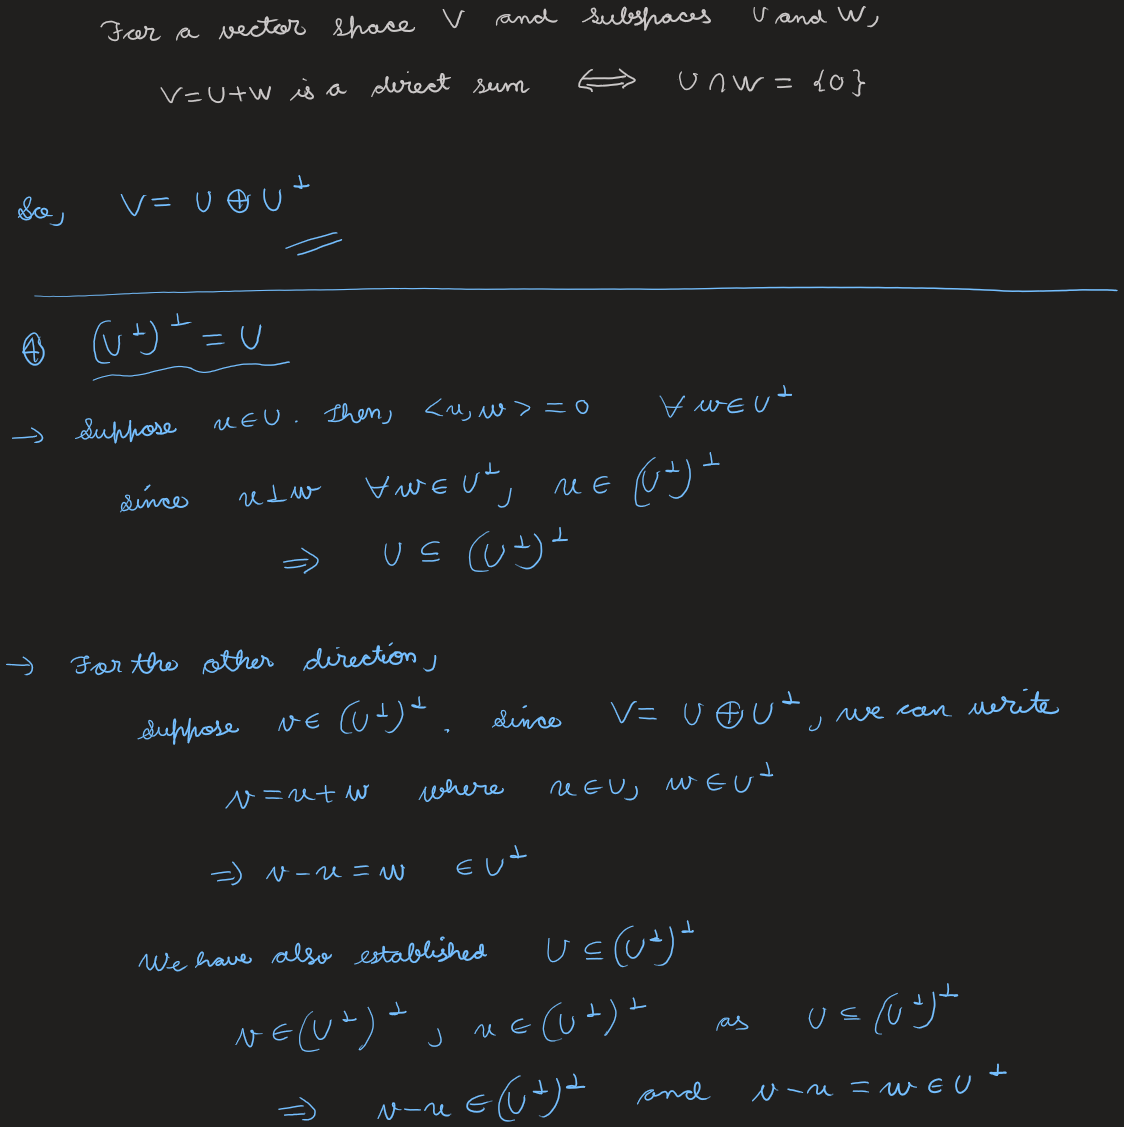 For a vector space V and subspaces U and W,
V=U+W is a direct sum ⟺ U∩W = {0}
So, V= U ⊕ U⊥
④ (U⊥)⊥ = U
→ Suppose u∈U. Then, <u,w> = 0 ∀ w∈U⊥
since u⊥w ∀w∈U⊥, u∈ (U⊥)⊥
⇒ U ⊆ (U⊥)⊥
→ For the other direction,
suppose v∈ (U⊥)⊥. since V= U⊕U⊥, we can write
v=u+w where u∈U, w∈U⊥
⇒ v-u = w ∈U⊥
We have also established U ⊆ (U⊥)⊥
v∈(U⊥)⊥, u∈(U⊥)⊥ as U ⊆ (U⊥)⊥
⇒ v-u ∈(U⊥)⊥ and v-u = w∈U⊥